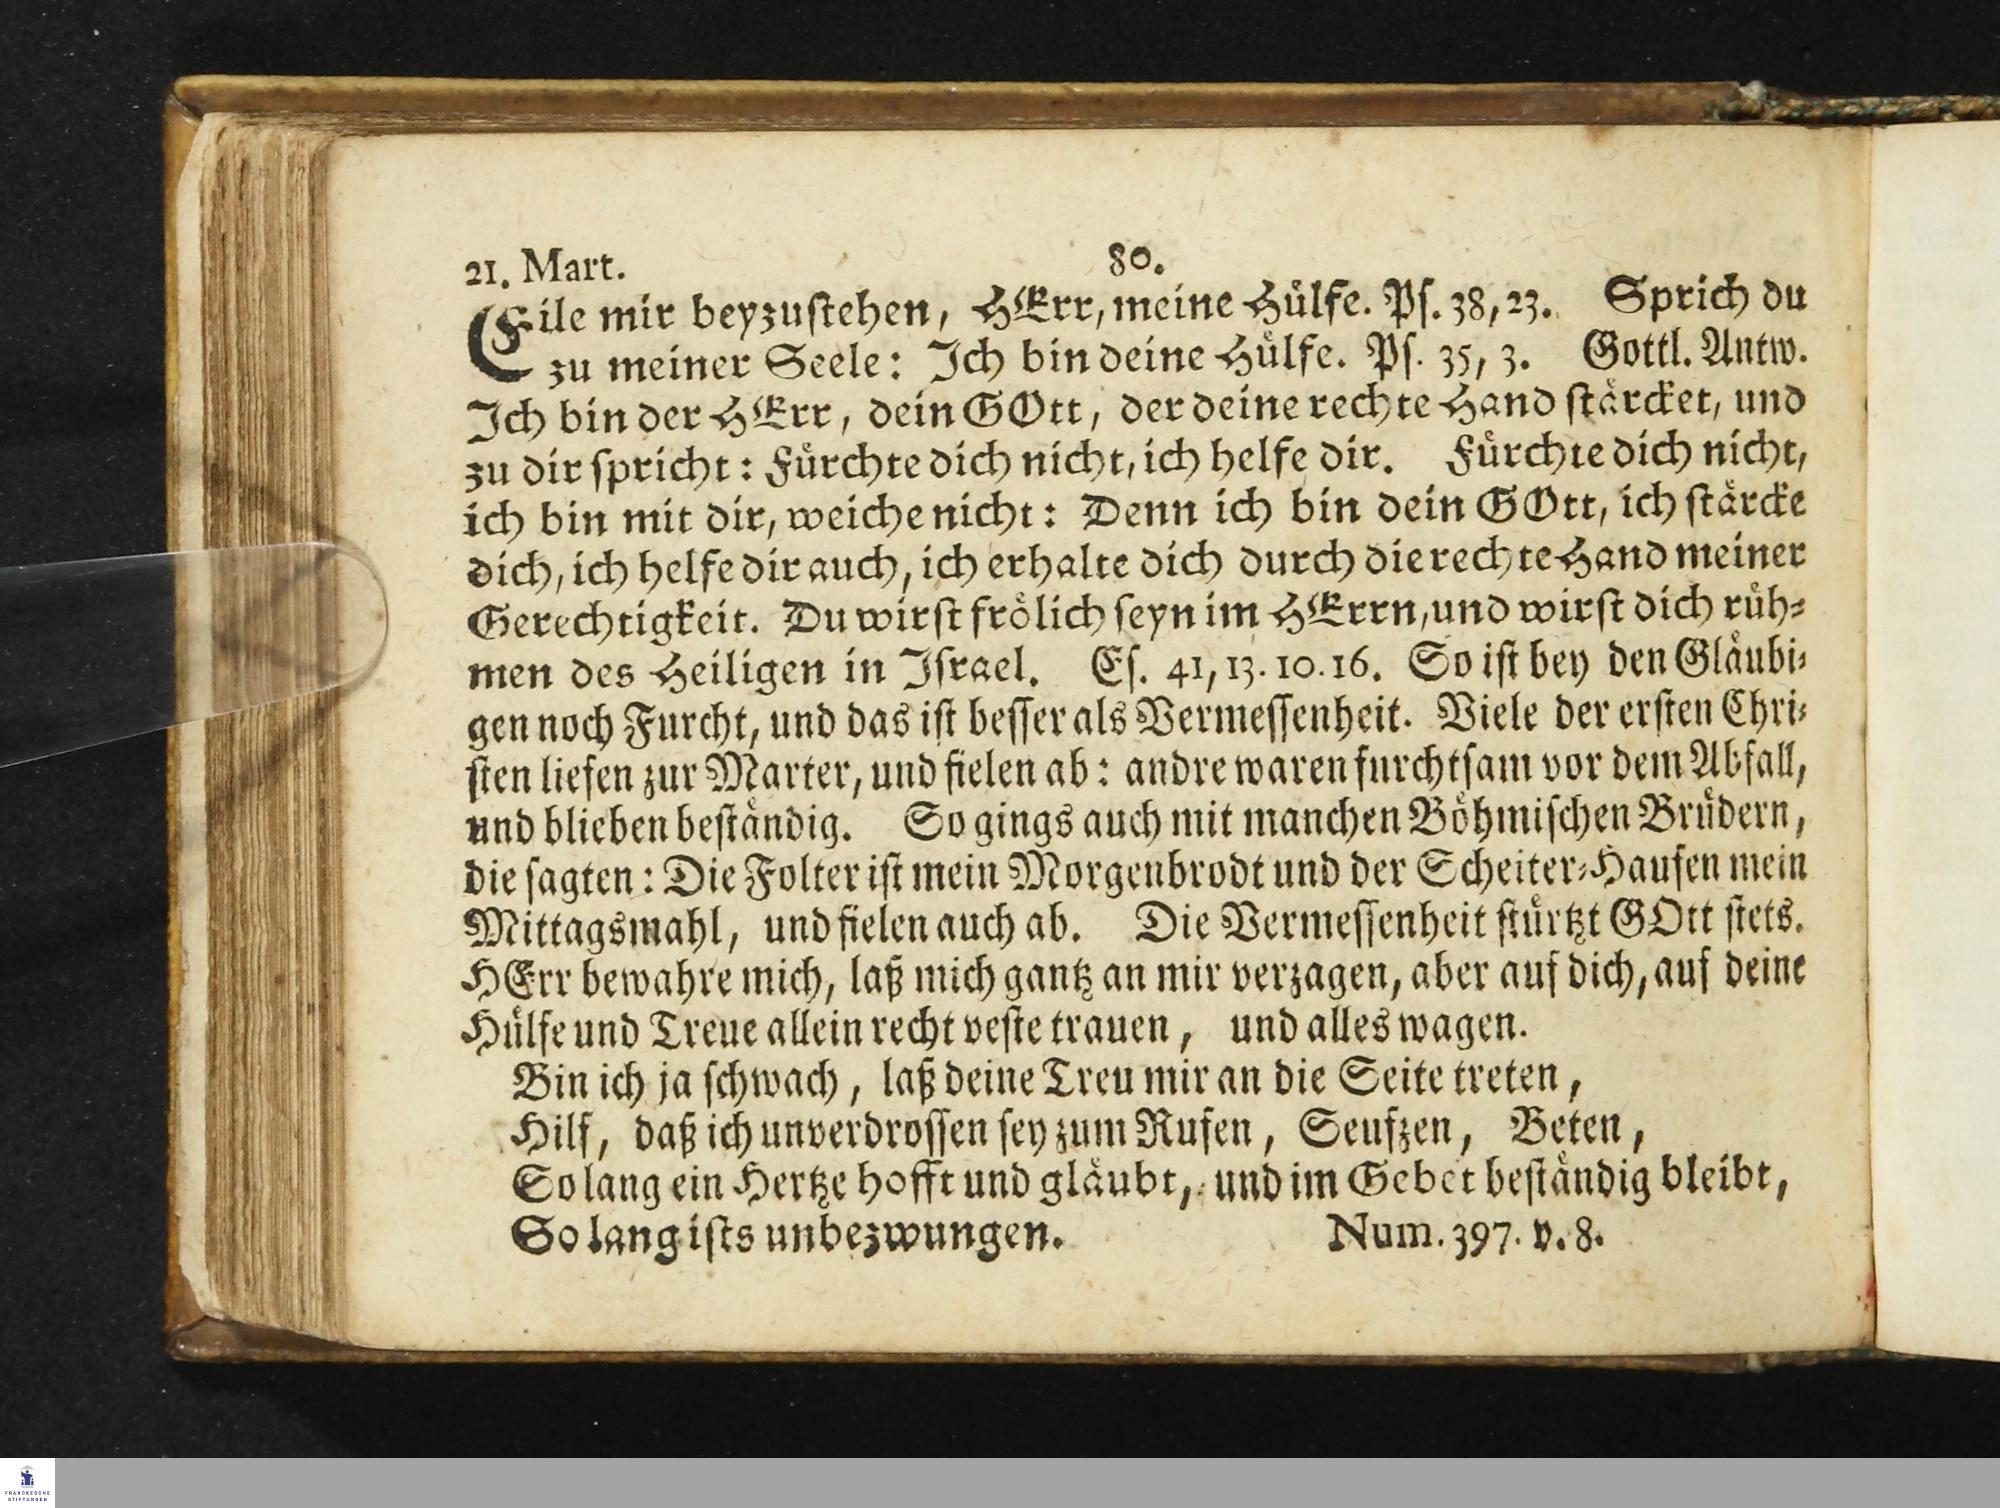 21. Mart.
80.
Eile mir beyzuſtehen, HErr, meine Hülfe. Pſ. 38, 23. Sprich du
zu meiner Seele: Ich bin deine Hülfe. Pſ. 35, 3. Gottl. Antw.
Ich bin der HErr, dein GOtt, der deine rechte Hand ſtårcket, und
zu dir ſpricht: Fůrchte dich nicht, ich helfe dir. Fůrchte dich nicht,
ich bin mit dir, weiche nicht: Denn ich bin dein GOtt, ich ſtårcke
dich, ich helfe dir auch, ich erhalte dich durch die rechte Hand meiner
Gerechtigkeit. Du wirſt froͤlich ſeyn im HErrn, und wirſt dich ruͤh⸗
men des Heiligen in Iſrael. Eſ. 41, 13. 10. 16. So iſt bey den Glaͤubi⸗
gen noch Furcht, und das iſt beſſer als Vermeſſenheit. Viele der erſten Chri⸗
ſten liefen zur Marter, und fielen ab: andre waren furchtſam vor dem Abfall,
und blieben beſtaͤndig. So gings auch mit manchen Boͤhmiſchen Bruͤdern,
die ſagten: Die Folter iſt mein Morgenbrodt und der Scheiter⸗Haufen mein
Mittagsmahl, und fielen auch ab. Die Vermeſſenheit ſtuͤrtzt GOtt ſtets.
HErr bewahre mich, laß mich gantz an mir verzagen, aber auf dich, auf deine
Huͤlfe und Treue allein recht veſte trauen, und alles wagen.
Bin ich ja ſchwach, laß deine Treu mir an die Seite treten,
Hilf, daß ich unverdroſſen ſey zum Rufen, Seufzen, Beten,
So lang ein Hertze hofft und glaͤubt, und im Gebet beſtaͤndig bleibt,
So lang iſts unbezwungen. Num. 397. v. 8.
FRANCKESCHE
STIFTUNGEN